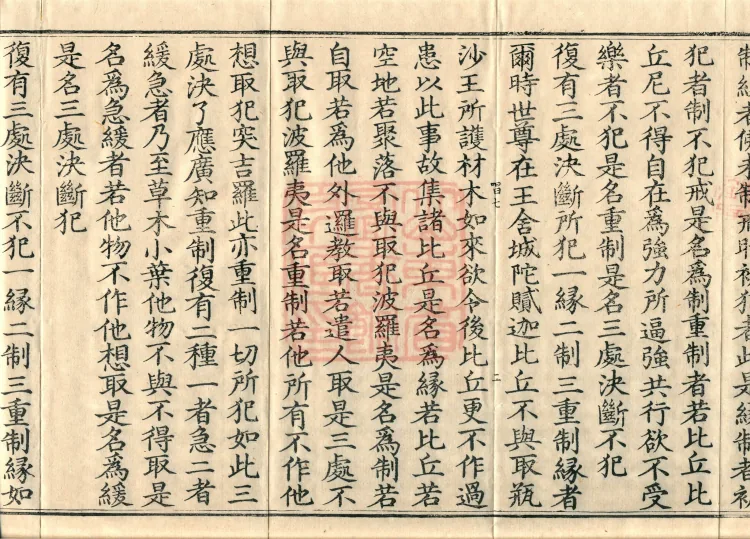 制緣者佛未制戒時初犯者此是緣制者初
犯者制不犯戒是名為制重制者若比丘比
丘尼不得自在為強力所逼強共行欲不受
樂者不犯是名重制是名三處決斷不犯
復有三處決斷所犯一縁二制三重制縁者
爾時世尊在王舍城陀貳迦比丘不與取瓶
沙王所護材木如來欲令後比丘更不作過
患以此事故集諸比丘是名為縁若比丘若
空地若聚落不與取犯波羅夷是名為制若
自取若為他外邏教取若遣人取是三處不
與取犯波羅夷是名重制若他所有不作他
想取犯突吉羅此亦重制一切所犯如此三
處決了應廣知重制復有二種一者急二者
緩急者乃至草木小葉他物不與不得取是
名為急緩者若他物不作他想取是名為緩
是名三處決斷犯
復有三處決斷不犯一縁二制三重制縁如
二